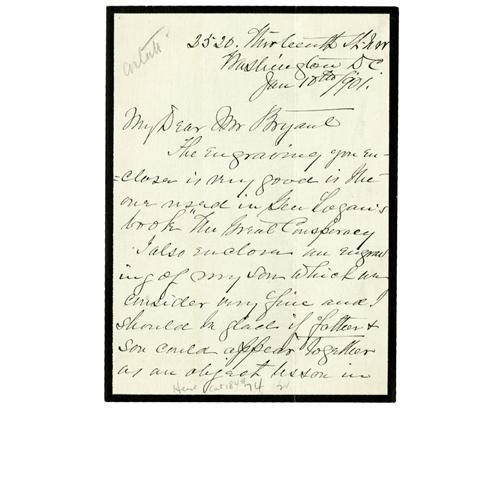 2520. Thirteenth St. N.W
Washington D C
Jan 10th 1901.
My Dear Mr Bryant
The engraving you en-
=close is very good is the
one used in Gen Logan's
book "The Great Conspiracy
I also enclose an engrav
ing of my son which we
consider very fine and I
should be glad if father &
son could appear together
as an object lesson in